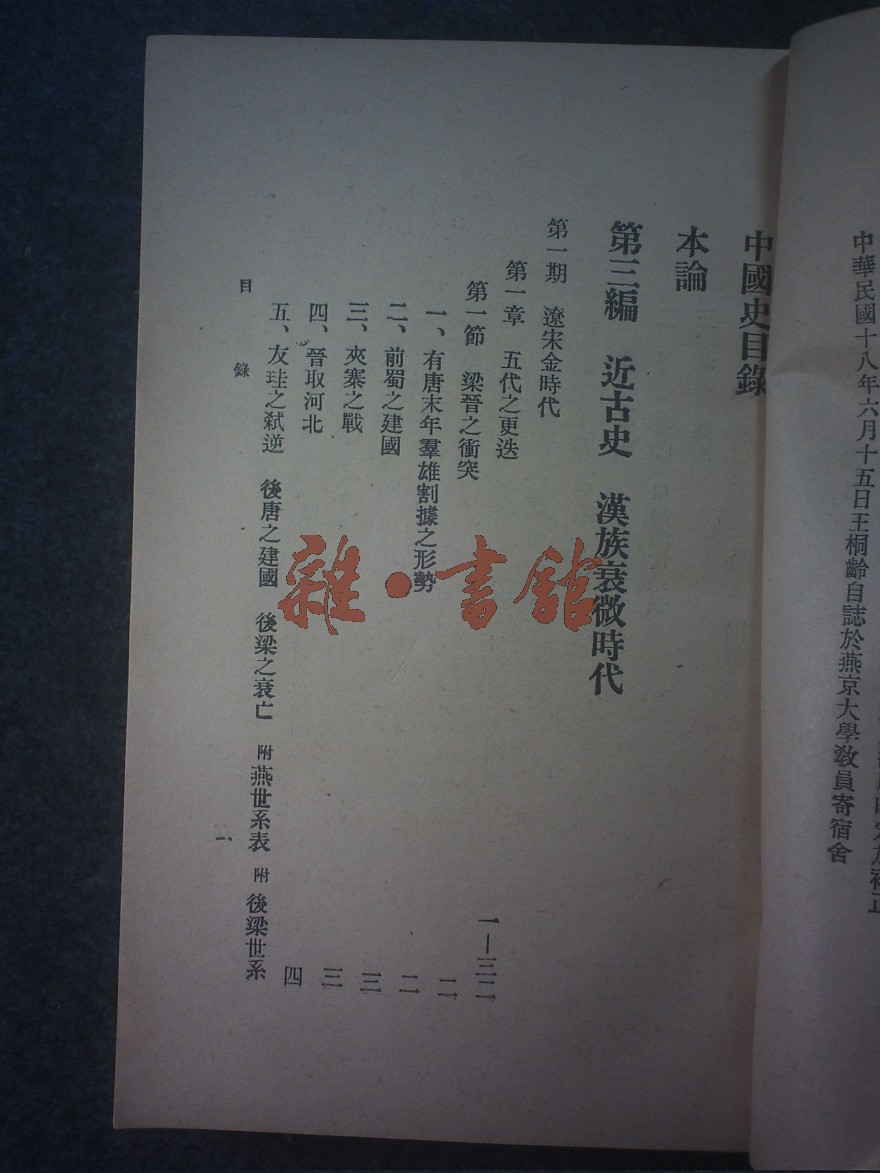 中華民國十八年六月十五日王桐齡自誌於燕京大學教員寄宿舍
中國史目錄
本論
第三編 近古史 漢族衰微時代
第一期 遼宋金時代
第一章 五代之更迭
第一節 梁晉之衝突 一—三二
一、有唐末年羣雄割據之形勢 二
二、前蜀之建國 二
三、夾寨之戰 三
四、晉取河北 三
五、友珪之弒逆 後唐之建國 後梁之衰亡 附燕世系表 附後梁世系 四
目錄 一
雜·書館